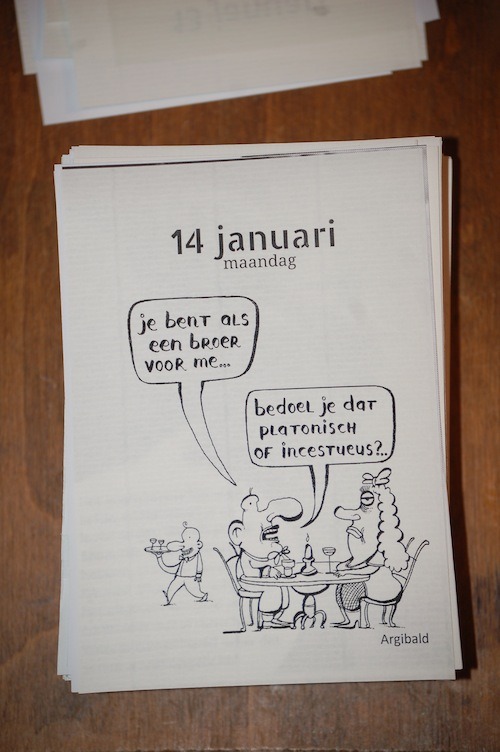 14 januari
maandag
je bent als
een broer
voor me...
bedoel je dat
platonisch
of incestueus?..
Argibald